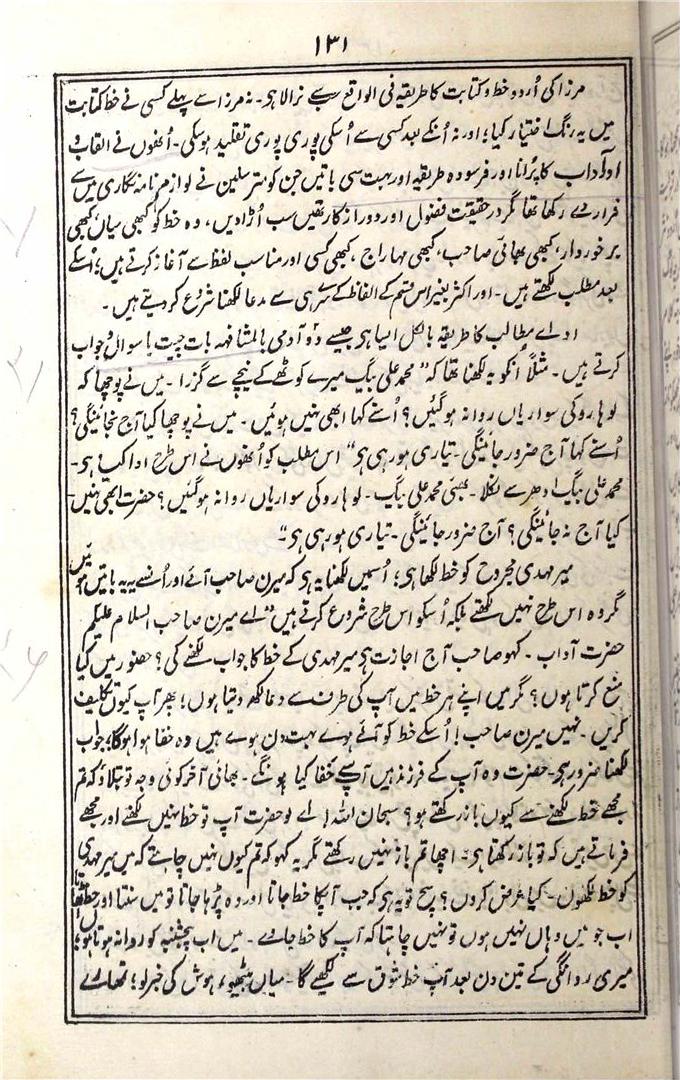 ۱۳۱
مرزا کی اُردو خط و کتابت کا طریقہ فی الواقع سب سے نرالا ہو۔ نہ مرزا سے پہلے کسی نے خط کتابت
میں یہ رنگ اختیار کیا؛ اور نہ اُنکے بعد کسی سے اُسکی پوری پوری تقلید ہو سکی۔ اُنھوں نے القاب و
آداب کا پُرانا اور فرسودہ طریقہ اور بہت سی باتیں جن کو مترسلین نے لوازم نامہ نگاری میں سے
قرار دے رکھا تھا مگر در حقیقت فضول اور دور از کار تھیں سب اُڑا دیں، وہ خط کو کبھی میاں، کبھی
برخوردار، کبھی بھائی صاحب، کبھی مہاراج، کبھی کسی اور مناسب لفظ سے آغاز کرتے ہیں؛ اسکے
بعد مطلب لکھتے ہیں۔ اور اکثر بغیر اس قسم کے الفاظ کے سرے ہی سے مدعا لکھنا شروع کر دیتے ہیں۔
اداے مطالب کا طریقہ بالکل ایسا ہو جیسے دو آدمی بالمشافہہ بات چیت یا سوال و جواب
کرتے ہیں۔ مثلاً اُنکو یہ لکھنا تھا کہ "محمد علی بیگ میرے کوٹھے کے نیچے سے گزرا۔ میں نے پوچھا کہ
لوہارو کی سواریاں روانہ ہو گئیں؟ اُسنے کہا ابھی نہیں ہوئیں۔ میں نے پوچھا کیا آج نجائینگی؟
اُسنے کہا آج ضرور جائینگی۔ تیاری ہو رہی ہو" اس مطلب کو اُنھوں نے اس طرح ادا کیا ہو۔
محمد علی بیگ ادھر سے نکلا۔ بھئی محمد علی بیگ۔ لوہارو کی سواریاں روانہ ہو گئیں؟ حضرت ابھی نہیں
کیا آج نہ جائینگی؟ آج ضرور جائینگی۔ تیاری ہو رہی ہو"
میر مہدی مجروح کو خط لکھا ہو؛ اُسمیں لکھنا یہ ہو کہ میرن صاحب آئے اور اُنسے یہ یہ باتیں ہوئیں
مگر وہ اس طرح نہیں لکھتے بلکہ اُسکو اس طرح شروع کرتے ہیں "اے میرن صاحب السلام علیکم
حضرت آداب۔ کہو صاحب آج اجازت ہو میر مہدی کے خط کا جواب لکھنے کی؟ حضور میں کیا
منع کرتا ہوں؟ مگر میں اپنے ہر خط میں آپ کی طرف سے دعا لکھ دیتا ہوں؛ پھر آپ کیوں تکلیف
کریں۔ نہیں میرن صاحب! اُسکے خط کو آئے ہوے بہت دن ہوے ہیں وہ خفا ہوا ہوگا؛ جواب
لکھنا ضرور ہو۔ حضرت وہ آپ کے فرزند ہیں آپسے خفا کیا ہونگے۔ بھائی آخر کوئی وجہ تو بتلاؤ کہ تم
مجھے خط لکھنے سے کیوں باز رکھتے ہو؟ سبحان اللہ! اے لو حضرت آپ تو خط نہیں لکھتے اور مجھے
فرماتے ہیں کہ تو باز رکھتا ہو۔ اچھا تم باز نہیں رکھتے مگر یہ کہو کہ تم کیوں نہیں چاہتے کہ میں میر مہدی
کو خط لکھوں۔ کیا عرض کروں؟ سچ تو یہ ہو کہ جب آپکا خط جاتا اور وہ پڑھا جاتا تو میں سنتا اور حظ اُٹھاتا
اب جو میں وہاں نہیں ہوں تو نہیں چاہتا کہ آپ کا خط جاوے۔ میں اب پنجشنبہ کو روانہ ہوتا ہوں؛
میری روانگی کے تین دن بعد آپ خط شوق سے لکھیے گا۔ میاں بیٹھو، ہوش کی خبر لو؛ تمھارے